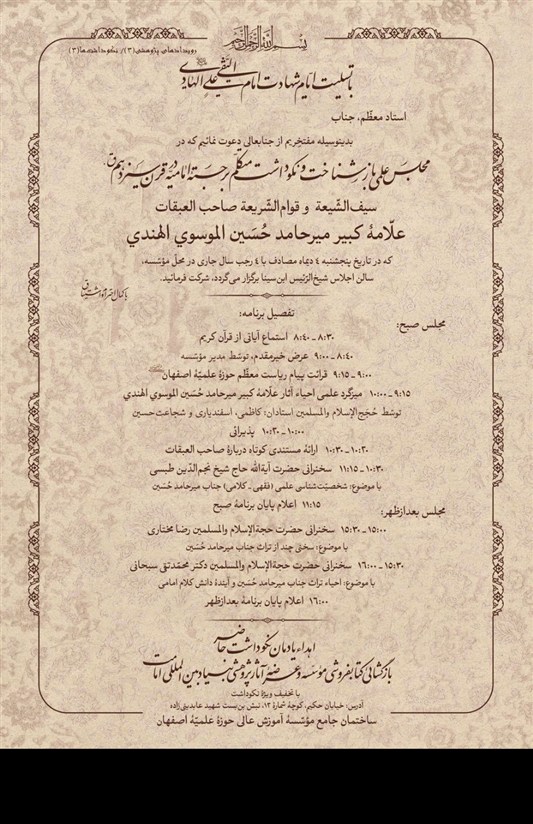 بسم الله الرحمن الرحیم
رویدادهای پژوهشی(۳)/ نکوداشت‌ها(۳)
با تسلیت ایام شهادت امام علی النقی الهادی
استاد معظّم، جناب
بدینوسیله مفتخریم از جنابعالی دعوت نمائیم که در
مجلس علمی بازشناخت و نکوداشت متکلّم برجستهٔ امامیّه در قرن سیزدهم ق.
سیف‌الشّیعة و قوام‌الشّریعة صاحب العبقات
علّامهٔ کبیر میرحامد حُسَین الموسوي الهندي
که در تاریخ پنجشنبه ٤ دیماه مصادف با ٤ رجب سال جاری در محلّ مؤسّسه،
سالن اجلاس شیخ‌الرّئیس ابن‌سینا برگزار می‌گردد، شرکت فرمائید.
تفصیل برنامه:
مجلس صبح:
۸:۳۰ ـ ۸:٤۰ استماع آیاتی از قرآن کریم
۸:٤۰ ـ ۹:۰۰ عرض خیرمقدم، توسّط مدیر مؤسّسه
۹:۰۰ ـ ۹:۱۵ قرائت پیام ریاست معظّم حوزهٔ علمیّهٔ اصفهان
۹:۱۵ ـ ۱۰:۰۰ میزگرد علمی احیاء آثار علّامهٔ کبیر میرحامد حُسَین الموسوي الهندي
توسّط حُجَج‌الإسلام والمسلمین استادان: کاظمی، اسفندیاری و شجاعت‌حسین
۱۰:۰۰ ـ ۱۰:۲۰ پذیرائی
۱۰:۲۰ ـ ۱۰:۳۰ ارائهٔ مستندی کوتاه دربارهٔ صاحب العبقات
۱۰:۳۰ ـ ۱۱:۱۵ سخنرانی حضرت آیةالله حاج شیخ نجم‌الدّین طبسی
با موضوع: شخصیّت‌شناسی علمی (فقهی ـ کلامی) جناب میرحامد حُسَین
۱۱:۱۵ اعلام پایان برنامهٔ صبح
مجلس بعدازظهر:
۱۵:۰۰ ـ ۱۵:۳۰ سخنرانی حضرت حجةالإسلام والمسلمین رضا مختاری
با موضوع: سخنی چند از تراث جناب میرحامد حُسَین
۱۵:۳۰ ـ ۱۶:۰۰ سخنرانی حضرت حجةالإسلام والمسلمین دکتر محمّدتقی سبحانی
با موضوع: احیاء تراث جناب میرحامد حُسَین و آیندهٔ دانش کلام امامی
۱۶:۰۰ اعلام پایان برنامهٔ بعدازظهر
اهداء یادمان نکوداشت حاضر
بازگشائی کتابفروشی مؤسّسه و عرضهٔ آثار پژوهشی بنیاد بین‌المللی امامت
با تخفیف ویژهٔ نکوداشت
آدرس: خیابان حکیم، کوچهٔ شمارهٔ ۱۲، نبش بن‌بست شهید عابدینی‌زاده
ساختمان جامع مؤسّسهٔ آموزش عالی حوزهٔ علمیّهٔ اصفهان